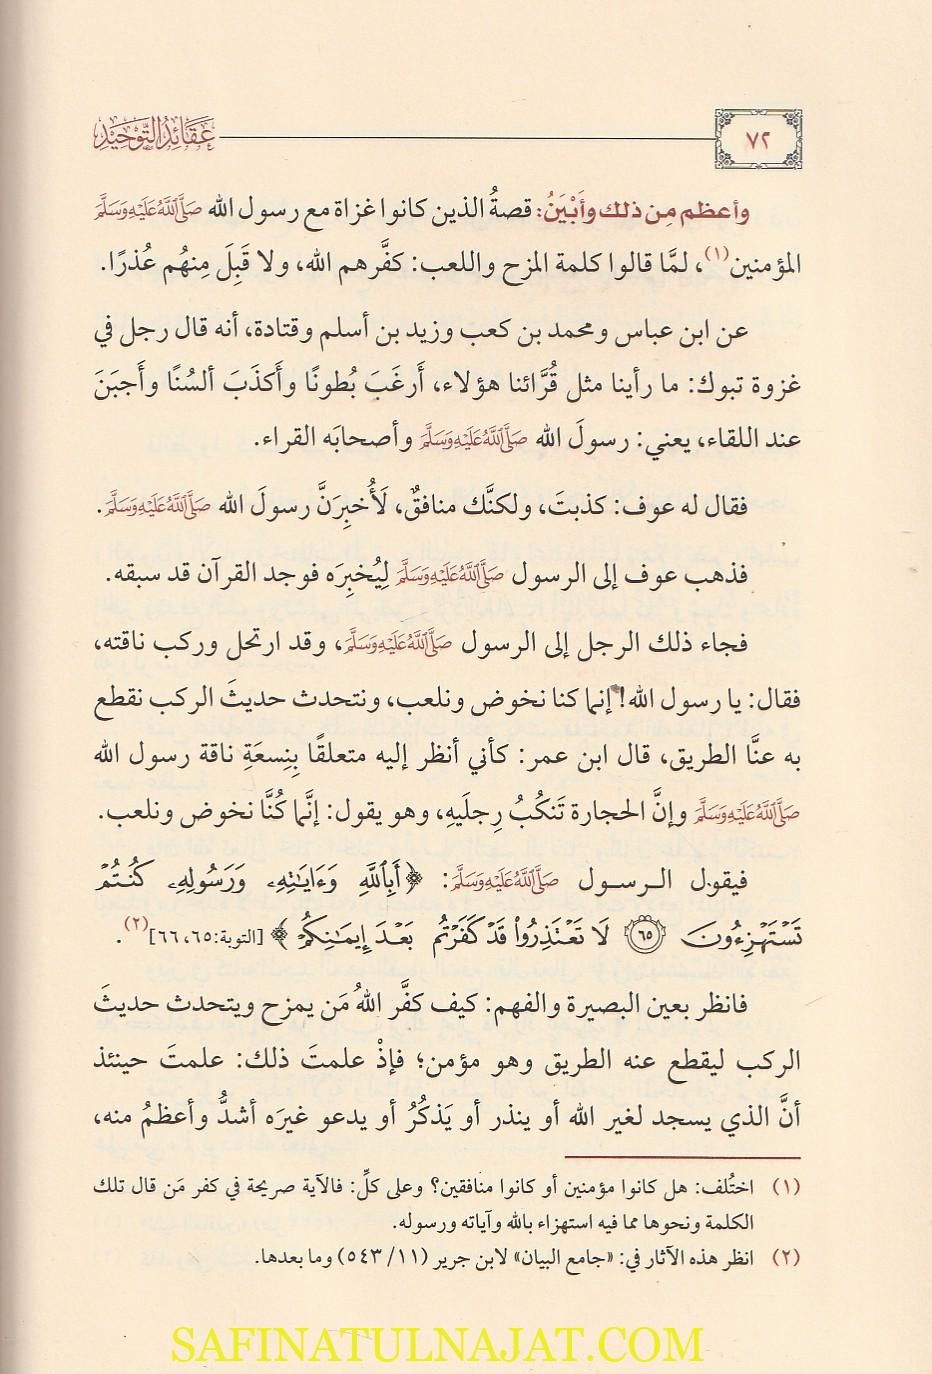 ٧٢
عَقَائِدُ التَّوْحِيدِ
وأعظم مِن ذلك وأَبْيَنُ: قصةُ الذين كانوا غزاة مع رسول الله صَلَّى اللَّهُ عَلَيْهِ وَسَلَّمَ
المؤمنين(١)، لمَّا قالوا كلمة المزح واللعب: كفَّرهم الله، ولا قَبِلَ مِنهُم عُذرًا.
عن ابن عباس ومحمد بن كعب وزيد بن أسلم وقتادة، أنه قال رجل في
غزوة تبوك: ما رأينا مثل قُرَّائنا هؤلاء، أَرغَبَ بُطونًا وأَكذَبَ ألسُنًا وأَجبَنَ
عند اللقاء، يعني: رسولَ الله صَلَّى اللَّهُ عَلَيْهِ وَسَلَّمَ وأصحابَه القراء.
فقال له عوف: كذبتَ، ولكنَّك منافقٌ، لَأُخبِرَنَّ رسولَ الله صَلَّى اللَّهُ عَلَيْهِ وَسَلَّمَ.
فذهب عوف إلى الرسول صَلَّى اللَّهُ عَلَيْهِ وَسَلَّمَ لِيُخبِرَه فوجد القرآن قد سبقه.
فجاء ذلك الرجل إلى الرسول صَلَّى اللَّهُ عَلَيْهِ وَسَلَّمَ، وقد ارتحل وركب ناقته،
فقال: يا رسول الله! إنما كنا نخوض ونلعب، ونتحدث حديثَ الركب نقطع
به عنَّا الطريق، قال ابن عمر: كأني أنظر إليه متعلقًا بِنِسعَةِ ناقة رسول الله
صَلَّى اللَّهُ عَلَيْهِ وَسَلَّمَ وإنَّ الحجارة تَنكُبُ رِجلَيهِ، وهو يقول: إنَّما كُنَّا نخوض ونلعب.
فيقول الرسول صَلَّى اللَّهُ عَلَيْهِ وَسَلَّمَ: ﴿أَبِٱللَّهِ وَءَايَٰتِهِۦ وَرَسُولِهِۦ كُنتُمۡ
تَسۡتَهۡزِءُونَ ٦٥ لَا تَعۡتَذِرُواْ قَدۡ كَفَرۡتُم بَعۡدَ إِيمَٰنِكُمۡ﴾ [التوبة:٦٥، ٦٦](٢).
فانظر بعين البصيرة والفهم: كيف كفَّر اللهُ مَن يمزح ويتحدث حديثَ
الركب ليقطع عنه الطريق وهو مؤمن؛ فإذْ علمتَ ذلك: علمتَ حينئذ
أنَّ الذي يسجد لغير الله أو ينذر أو يَذكُرُ أو يدعو غيرَه أشدُّ وأعظمُ منه،
(١) اختُلف: هل كانوا مؤمنين أو كانوا منافقين؟ وعلى كلٍّ: فالآية صريحة في كفر مَن قال تلك
الكلمة ونحوها مما فيه استهزاء بالله وآياته ورسوله.
(٢) انظر هذه الآثار في: «جامع البيان» لابن جرير (١١/ ٥٤٣) وما بعدها.
SAFINATULNAJAT.COM